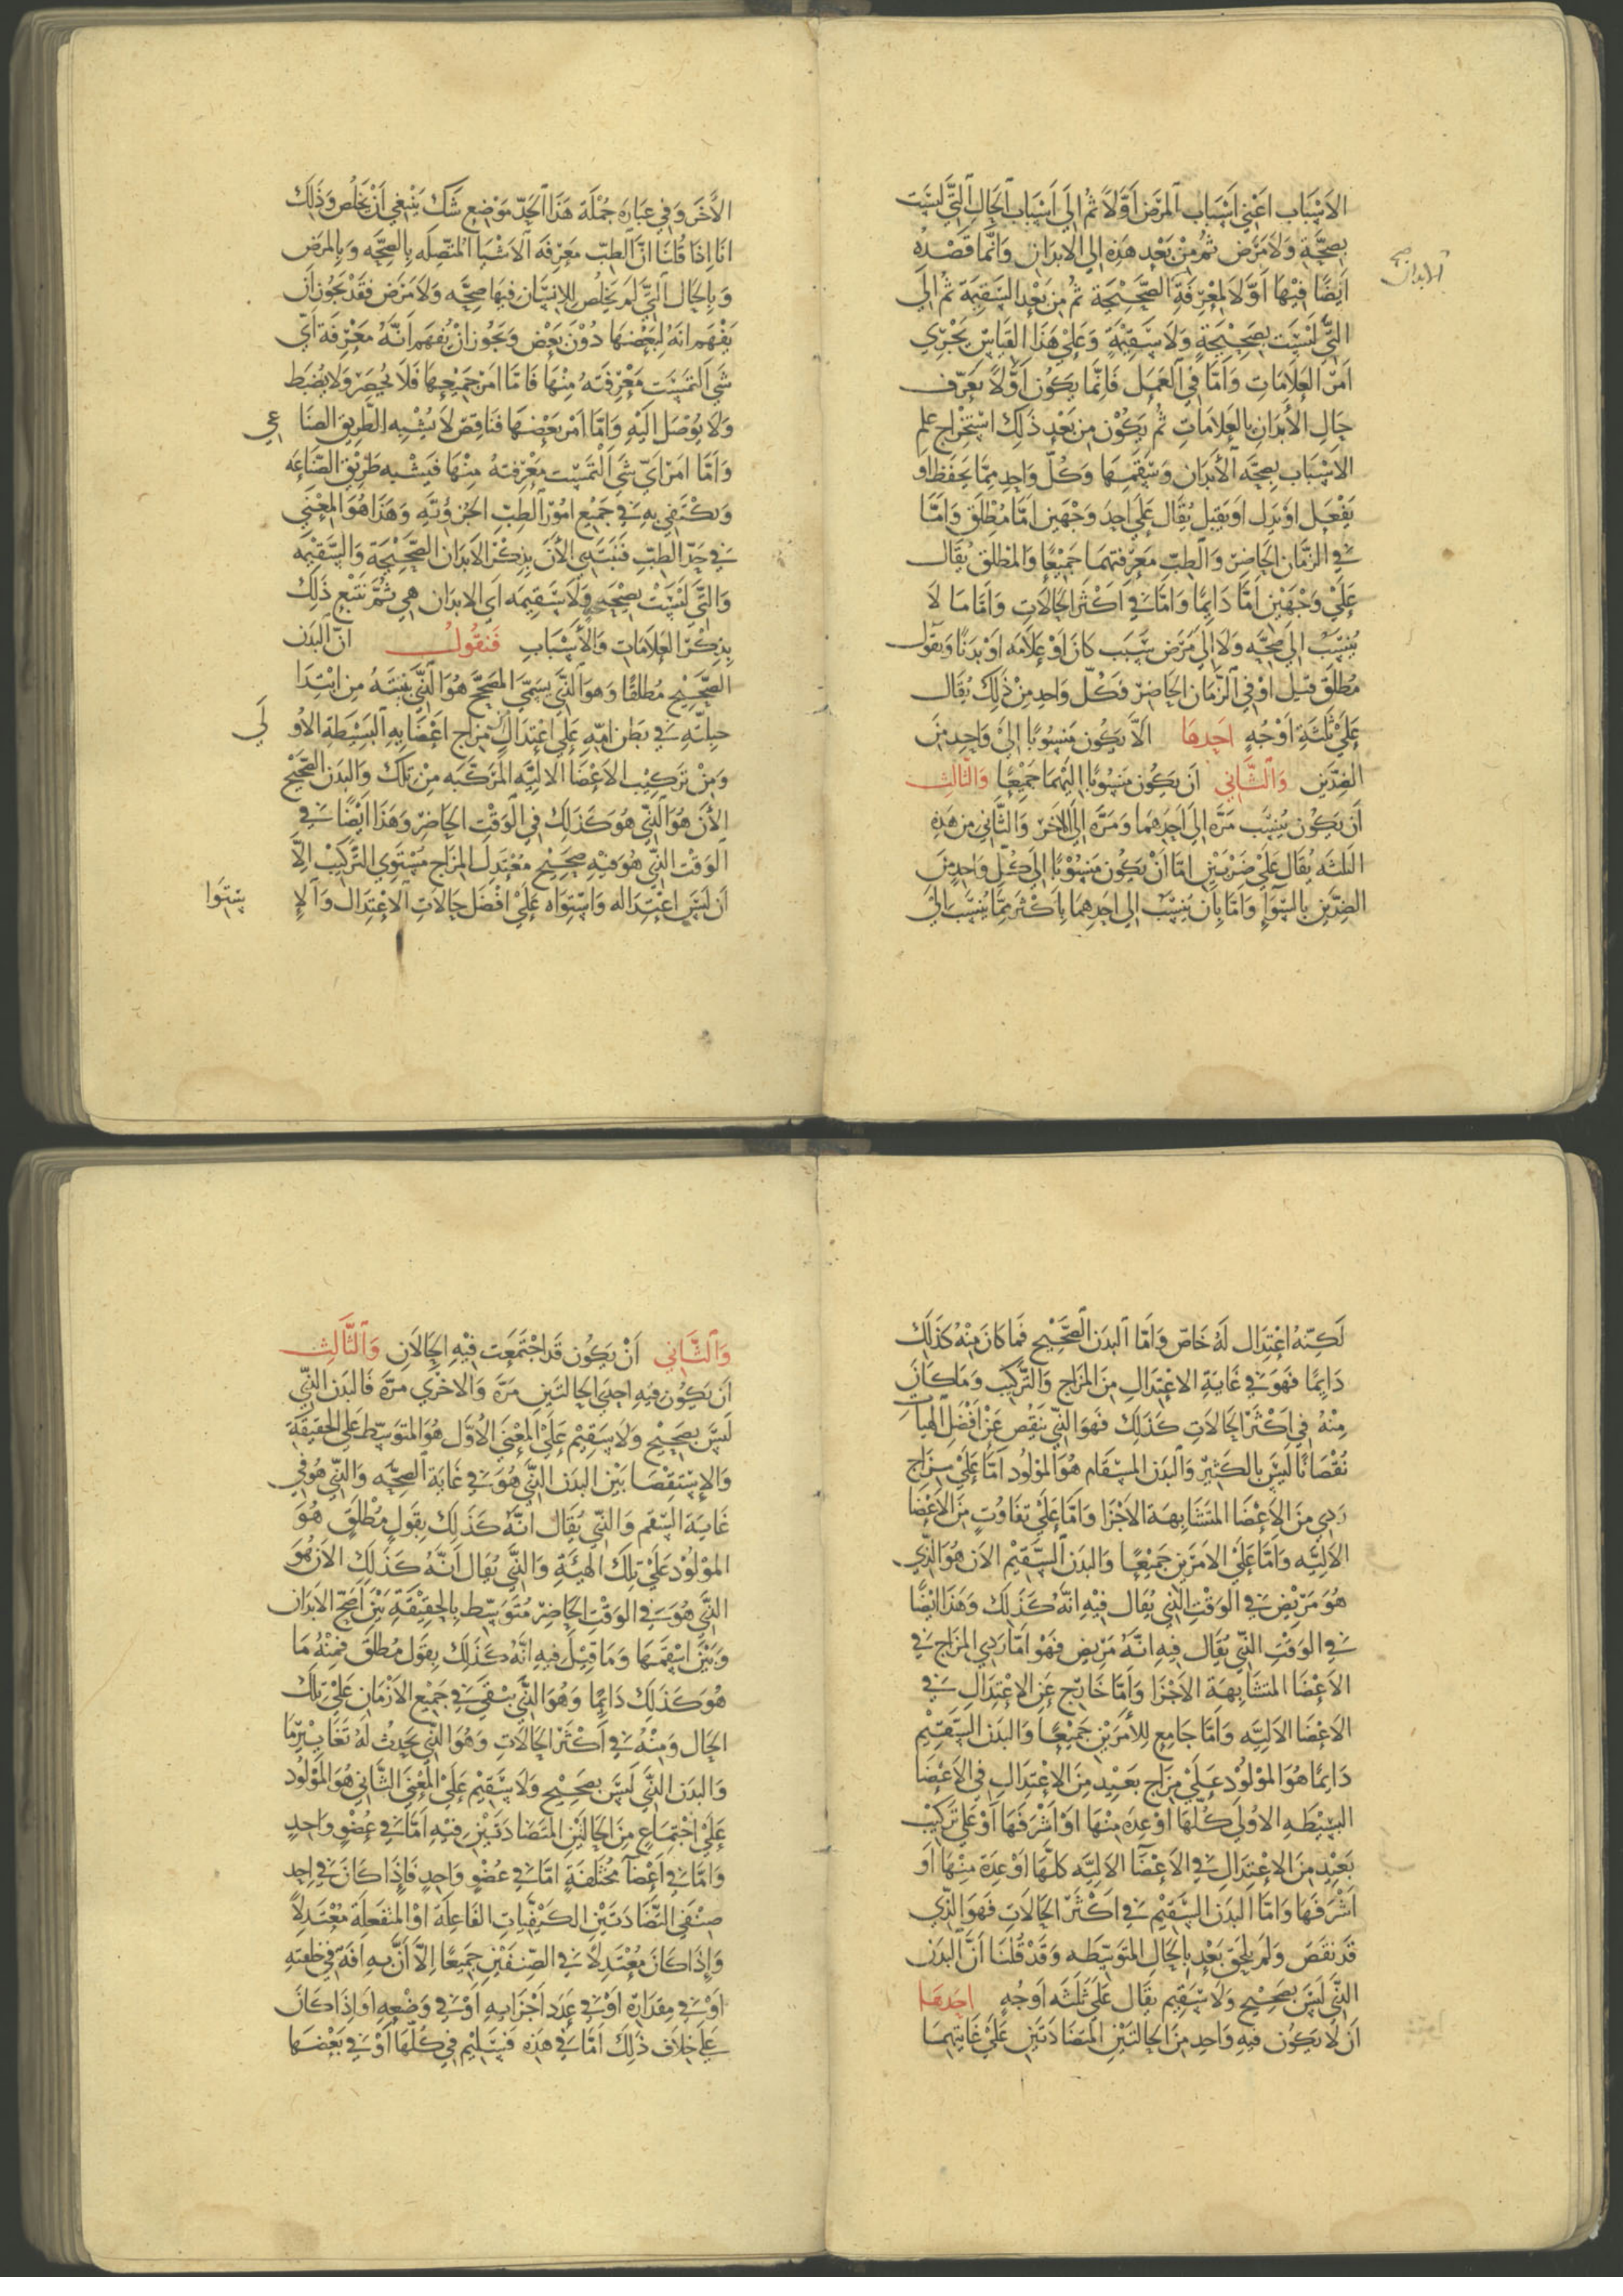 الاَسْبَاب اعَنْي اَسْبَاب المَرَض أَوَّلاً ثُم الَي اَسْبَاب الحَال التَّي لَيسَت
بصحَّة وَلاَ مَرَض ثُمَّ مِنْ بَعْد هَذه الي الابدَان وَانَّما قَصْدُه
الابدان صح
اَيضًا فيْهَا اَوَّلاَ لمَعْرفَة الصَّحيْحَة ثُم مِن بَعْد السَّقيمَة ثُم الَي
التَّي لَيْسَت بصَحيْحَةٍ وَلاَ سَقيْمَةٍ وَعَلي هَذَا القيَاسْ يَجْري
اَمرْ العَلاَمَاتِ وَاَمَّا في العَمَل فَانَّما يَكوُن اَوَّلاً يَعَرّف
حَال الأبدَان بالعَلاَمَاتِ ثُم يَكوُنْ مِن بَعْد ذَلكَ اسْتخْراج علم
الاَسْبَاب بصحَّه الأَبدَان وَسَقمهَا وَكُلّ وَاحِد ممَّا يَحفَظ او
يَفْعَل اوْ يَدل اَو يَقبَل يُقَال عَلَي احَد وَجْهَين امَّا مُطْلَق وَامَّا
في الزمَّان الحَاضِرْ وَالطبّ مَعَرفتهمَا جَميْعًا وَالمُطلَق يُقَال
عَلَيْ وَجْهَيْن امَّا دَايمًا وَامَّا في اكْثَر الحَالاَتِ وَامَّا مَا لاَ
يُنسَبْ الي صحَّه وَلاَ الي مَرَض سَبَب كَانَ اَوْ عَلاَمَه اَوْ بَدَنًا وَيقوُل
مُطلَق قيْل اوْ في الزَّمَان الحَاضِرْ فَكُلّ وَاحِد مِنْ ذَلكَ يُقَال
عَلي ثَلثَة اَوْجُهٍ احَدهَا الاَّ يَكوُن مَنسوُبًا اليْ وَاحِد مِنَ
الضدَّين وَالثَّاني اَن يَكوُن مَنسوُبًا اليْهمَا جَميْعًا وَالثَّالث
أَن يَكوُن يُنسَب مَرَّه الي اَحَدهمَا وَمَرَّه الَي الاخَر وَالثَّاني مِن هَذه
الثلثَه يُقَال عَلَيْ ضَرْبَيْن امَّا اَنْ يَكوُن مَنسوُبًا الَي كُلّ وَاحِدٍ مِنَ
الضدَّين بالسَّوَآءِ وَامَّا بأَن يُنسَبْ الي احَدهمَا باَكْثَر ممَّا يُنسَب الَي
الأَخَر وَفي عبَارَه جُمْلَة هَذَا الحَدّ مَوْضع شَك يَنْبَغي اَنْ يَخلُص وَذَلكَ
انَا اذَا قُلنَا انَّ الطبّ مَعرْفَه الاَشْيَا المتَّصلَه بالصحَّه وَبالمرَض
وَبالحَال التَّي لَم يَخلُص للانسَان فيهَا صحَّه وَلاَ مَرَض فَقَدْ يَجوُز اَن
يَفْهَم انَهُ لبَعْضهَا دُوْنَ بَعْض وَيَجُوز انْ يُفهَم اَنَّهُ مَعْرفَة اَيّ
شَي اَلتمسَت مَعْرفَتَهُ مِنْهَا فَامَّا اَمرْ جَميْعهَا فَلاَ يُحصَر وَلاَ يُضبَط
وَلاَ يوُصَل اِلَيْه وَامَّا اَمْر بَعْضهَا فَنَاقِصْ لاَ يُشْبه الطَّريق الصنَاعي
وَاَمَّا امَرْ اَيّ شَي اَلْتمَست مَعْرفتهُ مِنْهَا فَيشْبه طَريْق الصّنَاعَه
وَيَكْتَفي به في جَميْع امُوْر الطِبّ الجُزؤيَّه وَهَذَا هُوَ المعْنَي
في حَدّ الطبّ فَنَبتَدي الأَنَ بذِكْر الابدَان الصَّحيْحَة وَالسَّقيْمَه
وَالتَّي لَيسَتْ بصحيْحَه وَلاَ سَقيمَه اَي الابدَان هي ثُمَّ نَتبع ذَلِكَ
بذكْر العَلاَمَاتِ وَالأَسْبَابِ فَنَقوُلُ انّ البَدَن
الصَّحيْح مُطلقًا وَهوَ الَّتي يسَمَّيَ المصَحَّح هُوَ الَّتي بنيَتهُ مِن ابْتدَا
جبلَّته في بَطن امّه عَلَي اعْتدَالٍ مَزاج اعْضَايه البَسيْطَة الاُولَي
وَمِنْ تَركِيْب الاَعْضَا الاليَّه المرَكَّبَه مِنْ تلكَ وَالبَدَن الصَّحيْح
الأَنَ هُوَ الَّتي هُوَ كَذَلكَ في الوَقْت الحَاضِرْ وَهَذَا ايْضًا في
الوَقْت الَّتي هُوَ فيْه صَحيْح مُعْتَدل المزَاج مُسْتَوي التَّركيْب الاَّ
اَن لَيسَ اعْتدَاله وَاسْتوَاه عَلَيْ افْضَل حَالاَتِ الاعْتِدَال وَالاِستوَا
لَكنّهُ اعْتِدَال لَهُ خَاصّ وَامَّا البَدَن الصَّحيْح فَمَا كَانَ مِنْهُ كَذَلكَ
دَايمًا فَهوَ في غَايَة الاعْتِدَال مِنَ المزَاج وَالتَّركيب وَمَا كَانَ
مِنْهُ في اكْثَر الحَالاَتِ كَذَلكَ فَهوَ الَّتي يَنقُص عَنْ اَفْضَل الهيات
نُقْصَانًا لَيسَ بالكَثير وَالبَدَن المِسْقَام هُوَ المَوْلوُد امَّا عَلَيْ مزَاج
رَدي مِنَ الاَعْضَا المتَشَابهَة الاَجْزَا وَامَّا عَلَيْ تفَاوُتٍ مِنَ الاَعْضَا
الاليَّه وَامَّا عَلَيْ الاَمرَين جَميْعًا وَالبَدَن السَّقيْم الاَن هُوَ الَّذي
هُوَ مَريْض في الوَقْت الَّتي يُقَال فيْه انَّهُ كَذَلكَ وَهَذَا ايْضًا
في الوَقْت الَّتي يُقَال فيْه انَّهُ مَريض فَهْوَ امَّا رَدي المزَاج في
الاَعْضَا المتشَابهَة الاَجْزَا وَامَّا خَارج عَن الاعْتِدَال في
الاَعْضَا الاليَّه وَامَّا جَامع للأَمرَيْن جَميْعًا وَالبَدَن السَّقيْم
دَايمًا هُوَ المَوْلوُد عَلَيْ مزَاج بَعيْد مِنَ الاِعْتدَال في الاَعْضَا
البَسيْطَه الاُولَي كُلّهَا اَوْ عدَّه مِنْهَا اوْ اَشْرَفَهَا اَوْ عَلَي تَركيْب
بَعيْد مِنَ الاعْتِدَال في الاَعْضَا الاليَّه كلّهَا اَوْ عدَّة مِنْهَا اَو
اَشْرَفَهَا وَامَّا البَدَن السَّقيْم في اَكْثَر الحَالاَتِ فَهوَ الَّذي
قَد نَقَصَ وَلَم يَلحَق بَعْد بالحَال المتَوَسّطَه وَقَدْ قُلنَا اَنَّ البَدَن
الَّتي لَيْسَ بصَحيْح وَلاَ سَقيْم يقَال عَلَيْ ثَلثَه اَوجُهٍ احَدهَا
اَن لاَ يَكوُن فيه وَاحِد مِنَ الحَالتَيْن المتَضَادَتَين عَلَيْ غَايتهمَا
وَالثَّاني اَنْ يَكوُن قَد اجْتَمَعَت فيْه الحَالاَن وَالثَّالث
اَن يَكوُن فيه احدَي الحَالتَيْن مَرَّه وَالاُخْرَي مَرَّة فَالبَدَن الَّتي
لَيسَ بصَحيْح وَلاَ سَقيْم عَلَيْ المعْنَي الاُوَّل هُوَ المتَوَسّط عَلي الحَقيقَة
وَالاِسْتقْصَا بَيْن البَدَن الَّتي هُوَ في غَايَة الصحَّه وَالَّتي هُوَ في
غَايَة السَّقم وَالَّتي يُقَال انَّهُ كَذَلكَ بقَولٍ مُطْلَقٍ هُوَ
الموْلوُد عَلَيْ تلكَ الهيئَة وَالَّتي يُقَال اَنَّهُ كَذَلِكَ الاَنَ هُوَ
الَّتي هُوَ في الوَقْت الحَاضِرْ مُتَوَسّط بالحَقيْقَة بَيْنَ اَصَحّ الاَبدَان
وَبَيْنَ اَسْقَمهَا وَمَا قيْلَ فيه انَّهُ كَذَلكَ بقَول مُطلَق فمِنْهُ مَا
هُوَ كَذَلكَ دَايمًا وَهُوَ الَّتي يَبْقَي في جَميْع الاَزْمَان عَلَيْ تلكَ
الحَال وَمِنْهُ في اَكْثَر الحَالاَتِ وَهُوَ الَّتي يَحدثُ لَهُ تَغَايْير مَا
وَالبَدَن الَّتي لَيسَ بصَحيْح وَلاَ سَقيْم عَلَيْ المعْنَي الثَّاني هُوَ المَوْلوُد
عَلَيْ اجْتمَاعٍ مِنَ الحَالَيْن المتَضَادَتَيْن فيْه امَّا في عُضْوٍ وَاحِدٍ
وَامَّا في اَعْضَآ مُخْتَلفَةٍ امَّا في عُضْو وَاحِدٍ فَاِذَا كَانَ في احِد
صِنْفَي التَّضَادَتَيْن الكَيْفيَّات الفَاعلَة اَوْ المنفَعلَة مُعْتَدِلاً
وَاِذَا كَانَ مُعْتَدِلاً في الصّنفَيْن جَميْعًا اِلاَّ أَنَّ به افَة في خلقته
اَوْ في مقدَارْه اَوْ في عَدَد اَجْزَايه اَوْ في وَضْعه اَو اذَا كَانَ
عَلَي خلاَف ذَلكَ اَمَّا في هَذه فَسَليْم في كُلّهَا اَوْ في بَعْضهَا